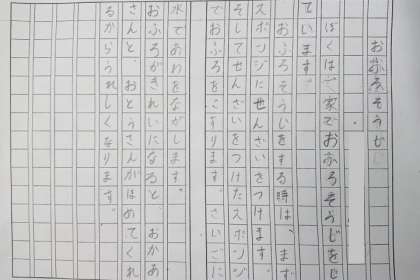 おふろそうじ
ぼくは、家でおふろそうじをし
ています。
おふろそうじをする時は、まず
スポンジにせんざいをつけます。
そしてせんざいをつけたスポンジ
でおふろをこすります。さいごに
水であわをながします。
おふろがきれいになると、おかあ
さんと、おとうさんがほめてくれ
るからうれしくなります。